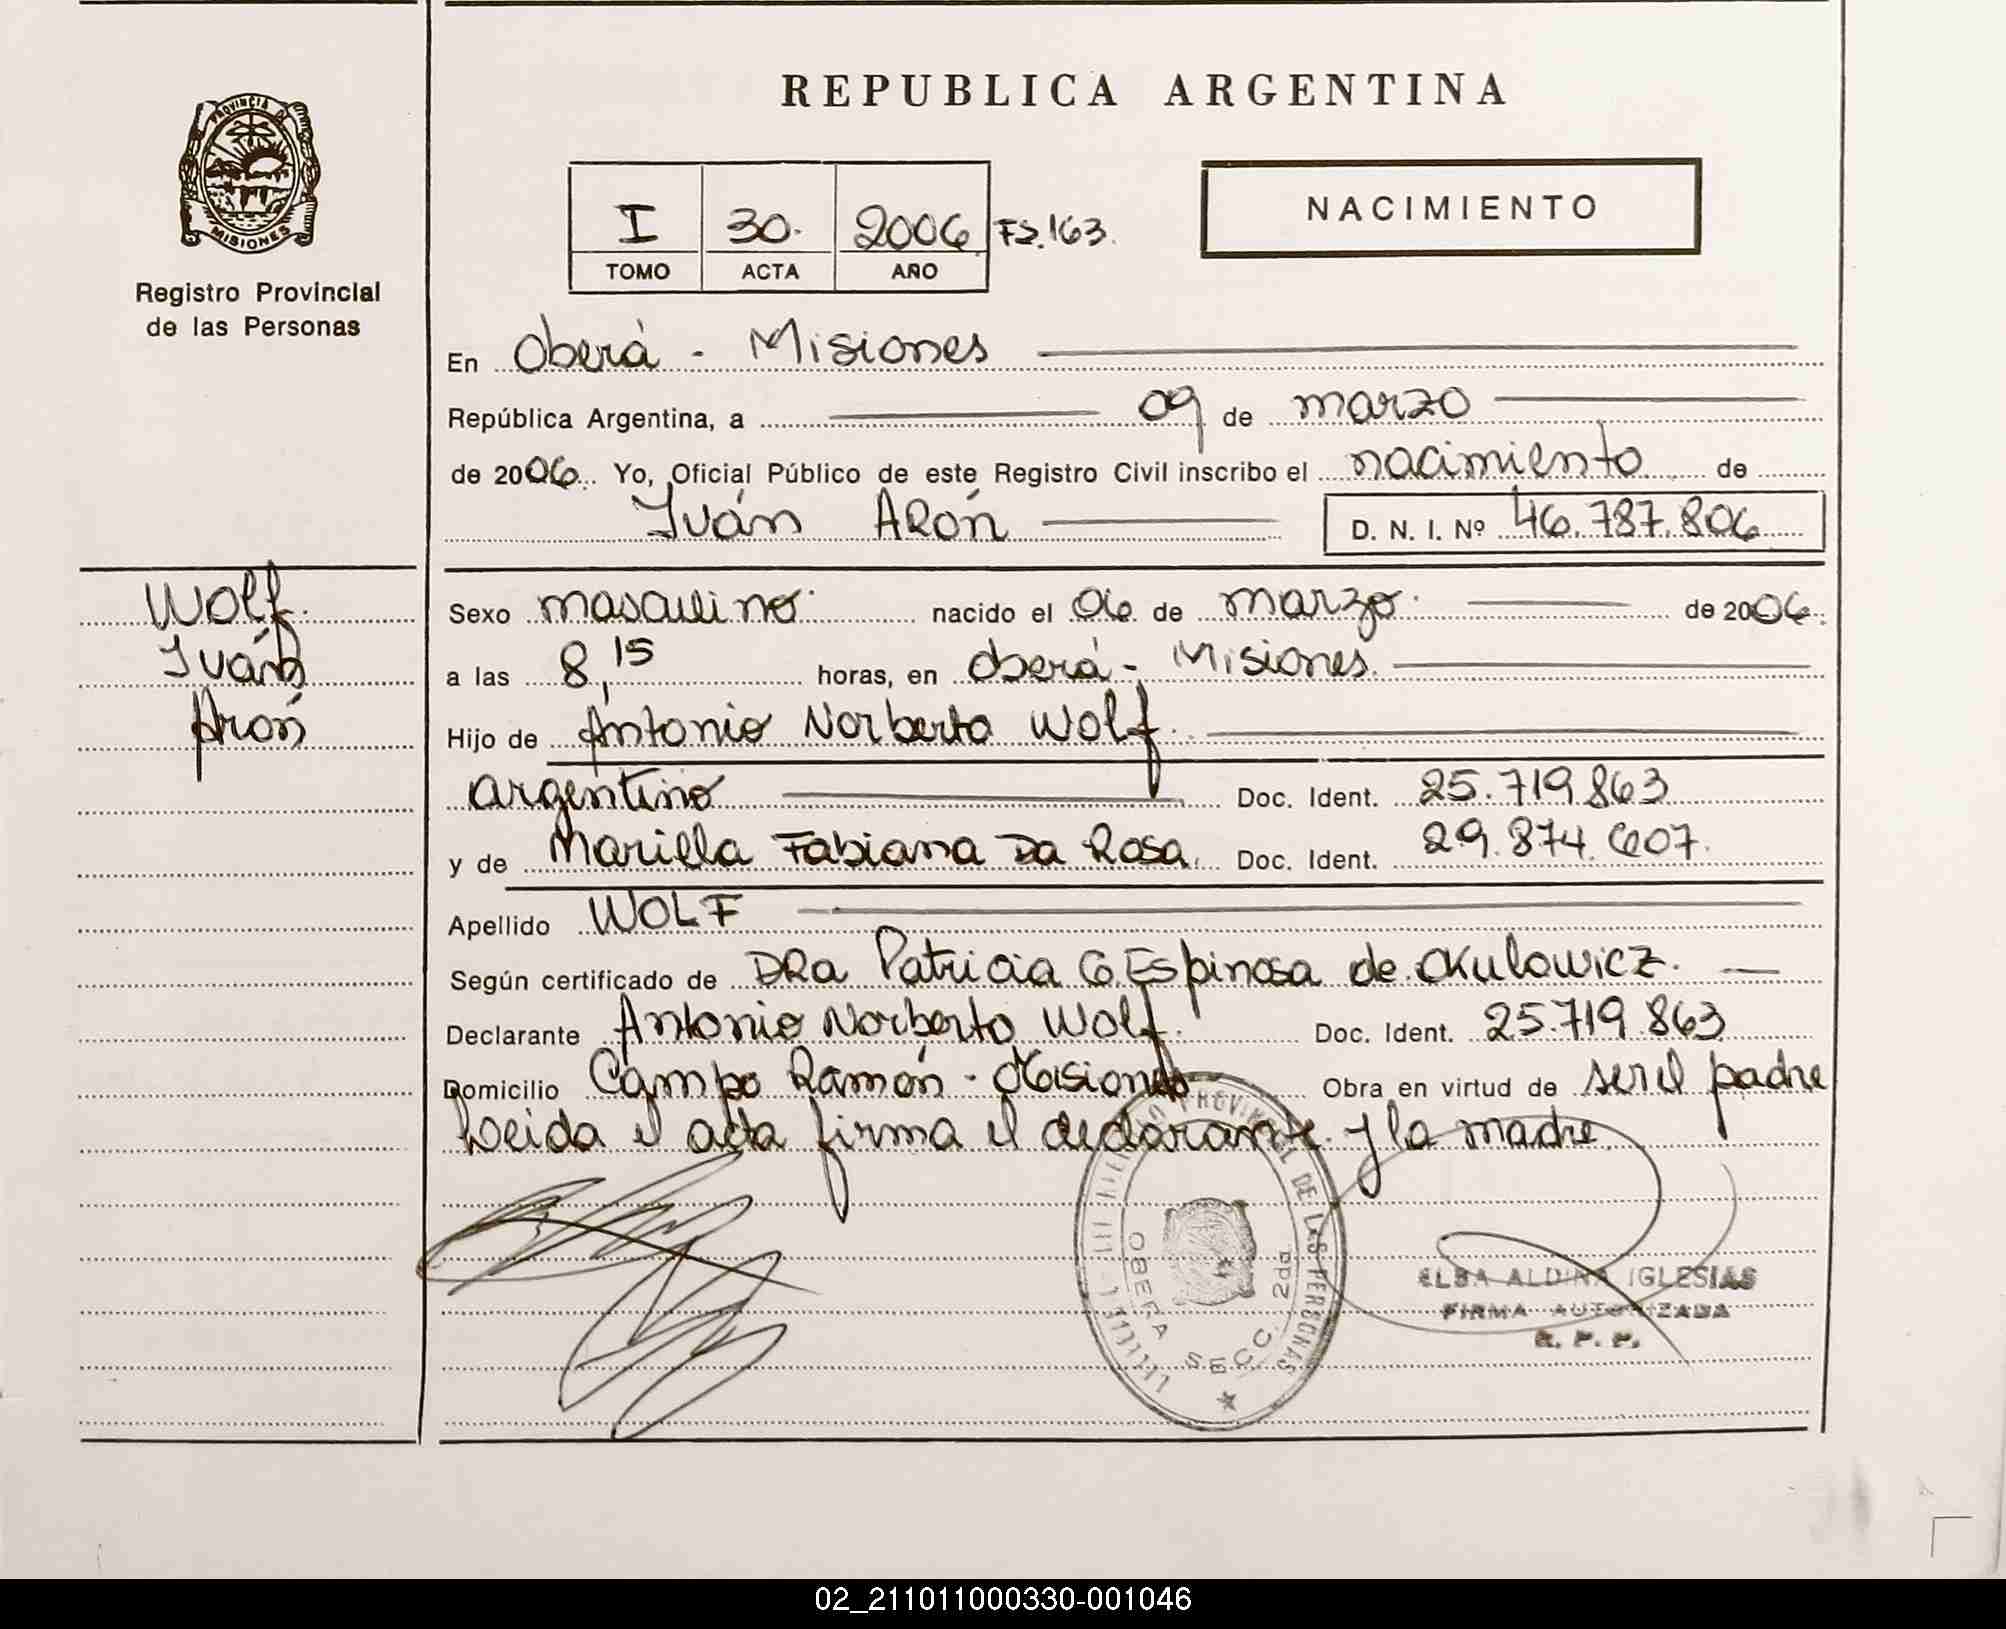 REPUBLICA ARGENTINA
PROVINCIA DE MISIONES
Registro Provincial
de las Personas
I 30. 2006 FS.163.
TOMO ACTA AÑO
NACIMIENTO
En Oberá - Misiones
República Argentina, a 09 de marzo
de 2006 Yo, Oficial Público de este Registro Civil inscribo el nacimiento de
Iván Arón D. N. I. Nº 46.787.806
Wolf
Iván
Arón
Sexo masculino nacido el 06 de marzo de 2006
a las 8,15 horas, en Oberá - Misiones.
Hijo de Antonio Norberto Wolf
argentino Doc. Ident. 25.719.863
y de Mariela Fabiana Da Rosa Doc. Ident. 29.874.607.
Apellido WOLF
Según certificado de DRa Patricia G. Espinosa de Okulowicz.
Declarante Antonio Norberto Wolf. Doc. Ident. 25.719.863
Domicilio Campo Ramón - Misiones Obra en virtud de ser el padre
Leida el acta firma el declarante y la madre
PROVINCIAL DE LAS PERSONAS
OBERA SECC. 2da
ELBA ALDINA IGLESIAS
FIRMA AUTORIZADA
R. P. P.
02_211011000330-001046